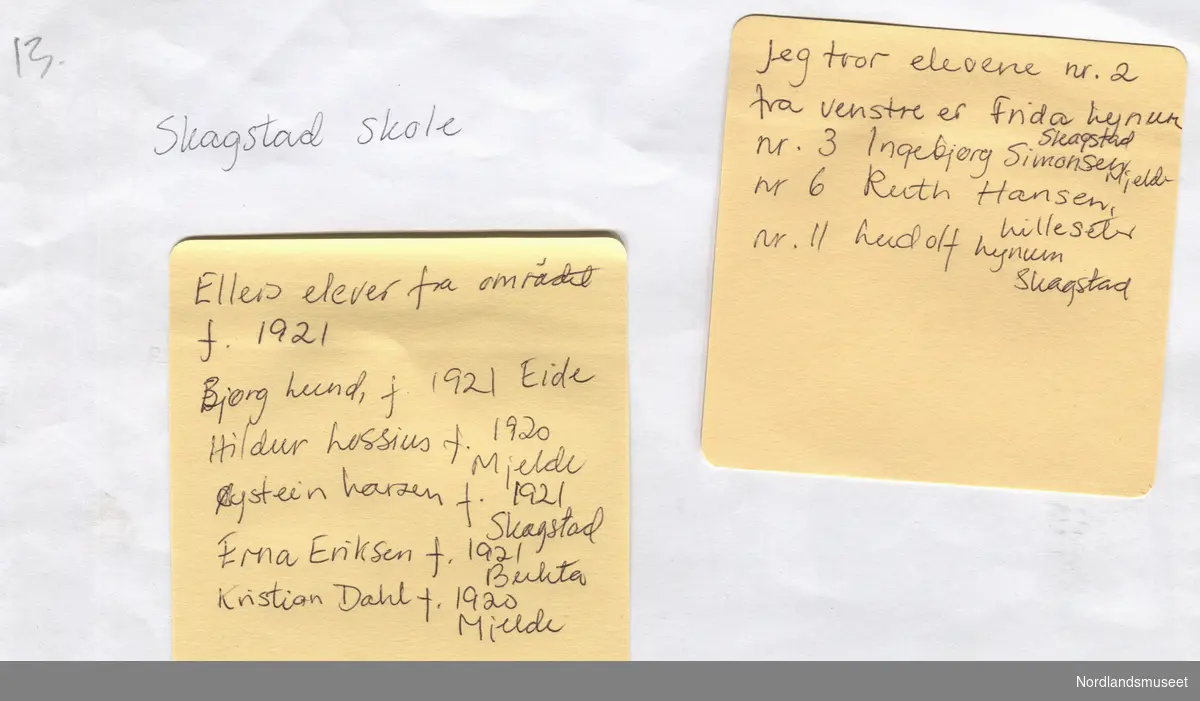 13.
Skagstad skole
Jeg tror elevene nr. 2
fra venstre er Frida Lynum
Skagstad
nr. 3 Ingebjørg Simonsen,
Mjelde
nr 6 Ruth Hansen,
Lillesæter
nr. 11 Ludolf Lynum
Skagstad
Ellers elever fra området
f. 1921
Bjørg Lund, f. 1921 Eide
Hildur Lossius f. 1920
Mjelde
Øystein Larsen f. 1921
Skagstad
Erna Eriksen f. 1921
Bukta
Kristian Dahl f. 1920
Mjelde
Nordlandsmuseet